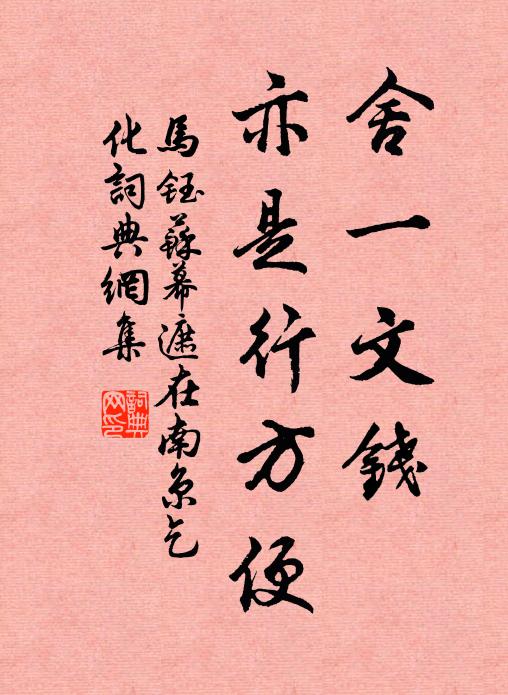 舍一文錢
亦是行方便
馬鈺蘇幕遮在南京乞
化詞典網集
詞典
网印